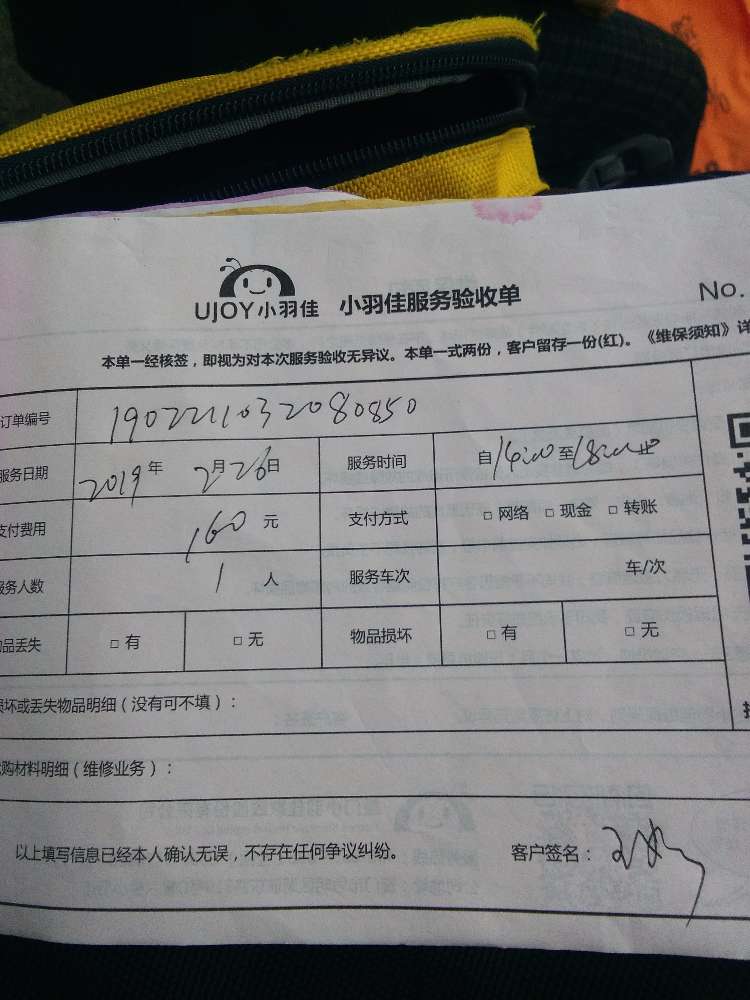 UJOY小羽佳 小羽佳服务验收单 No.
本单一经核签，即视为对本次服务验收无异议。本单一式两份，客户留存一份(红)。《维保须知》详
订单编号 1902211032080850
服务日期 2019年 2月26日 服务时间 自14:00至18:00止
支付费用 160元 支付方式 □ 网络 □ 现金 □ 转账
服务人数 1人 服务车次 车/次
物品丢失 □ 有 □ 无 物品损坏 □ 有 □ 无
损坏或丢失物品明细（没有可不填）：
购材料明细（维修业务）：
以上填写信息已经本人确认无误，不存在任何争议纠纷。 客户签名：